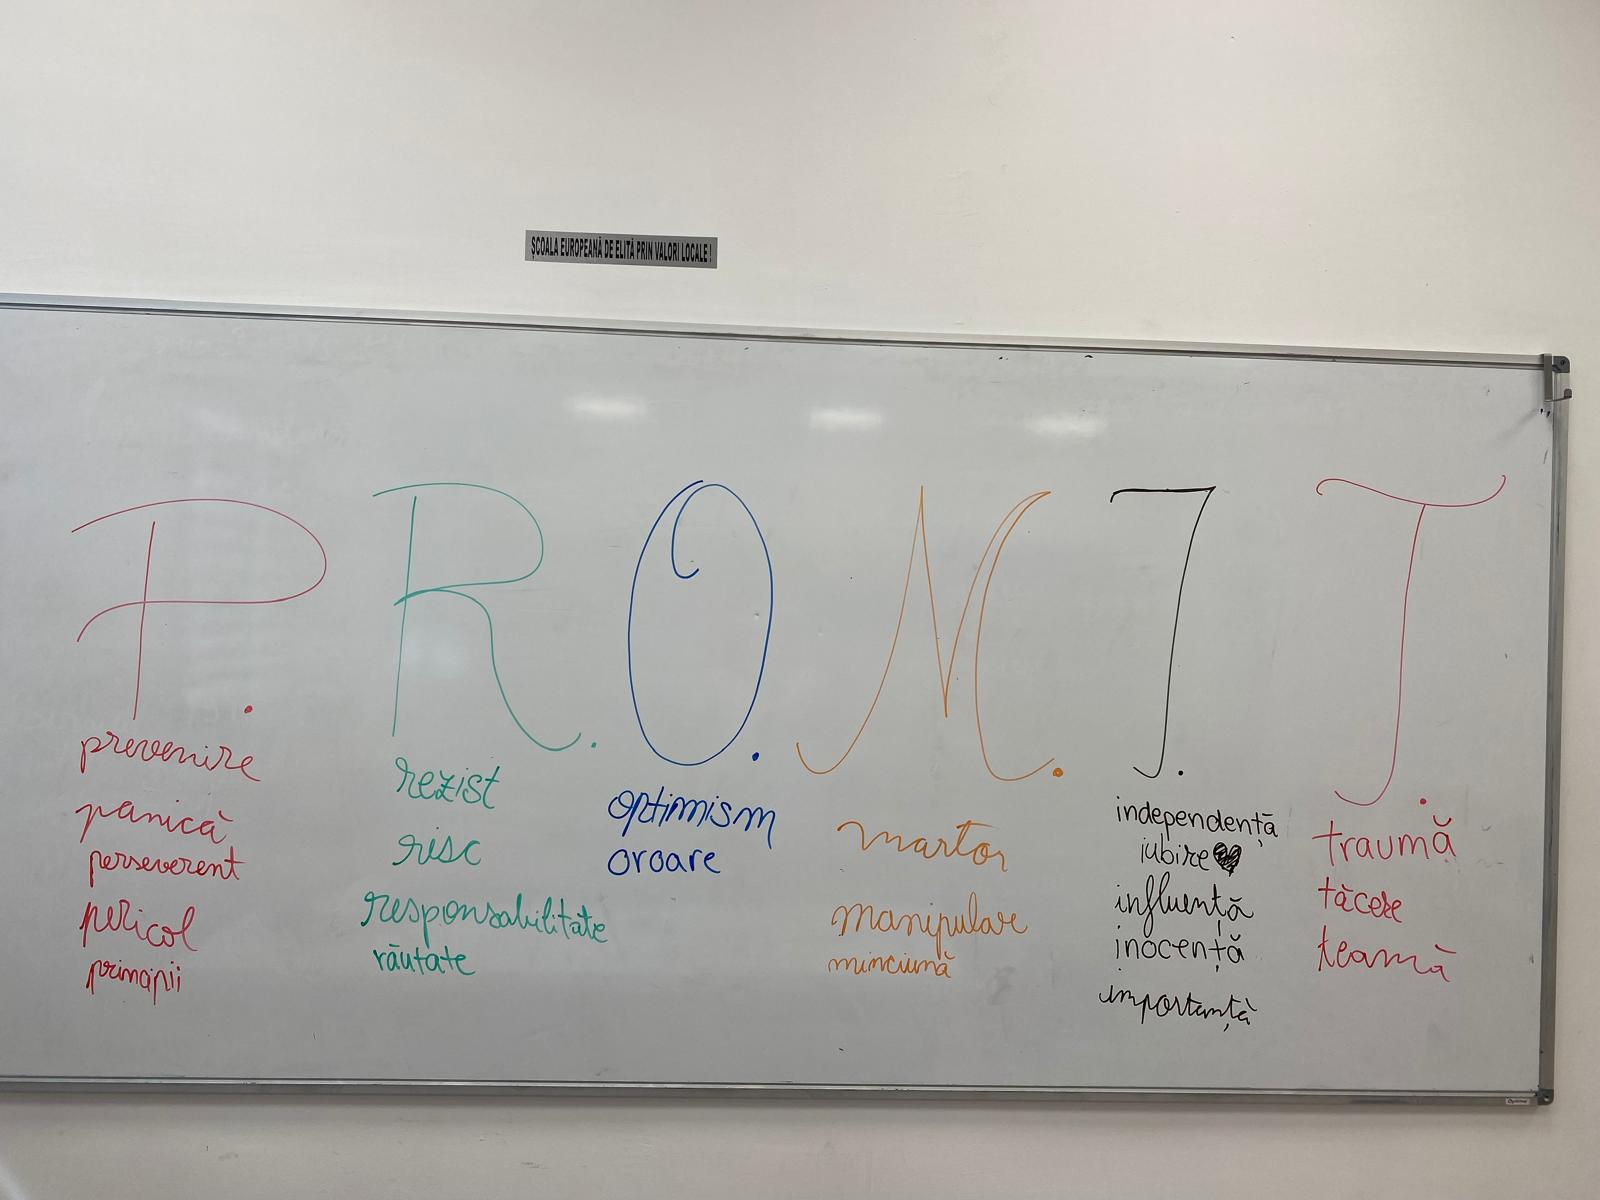 ȘCOALA EUROPEANĂ DE ELITĂ PRIN VALORI LOCALE !
P. R. O. M. I. T.
prevenire
panică
perseverent
pericol
principii
rezist
risc
responsabilitate
răutate
optimism
oroare
martor
manipulare
minciună
independență
iubire
influență
inocență
importanță
traumă
tăcere
teamă